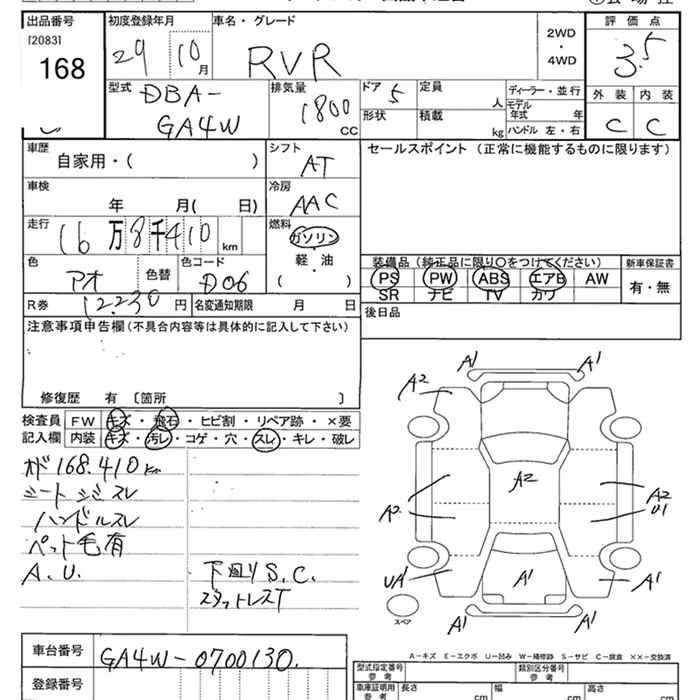 出品番号 初度登録年月 車名・グレード 2WD・4WD 評価点
[2083] 168 29 10月 RVR 3.5
型式 DBA-GA4W 排気量 1800 CC ドア 5 定員 人 ディーラー・並行 外装 内装
形状 積載 kg モデル年式 年 ハンドル 左・右 C C
車歴 シフト セールスポイント (正常に機能するものに限ります)
自家用・( ) AT
車検 冷房
年 月( 日) AAC
走行 燃料
16万8千410 km ガソリン
軽・油
色 色コード ( ) 装備品 (純正品に限り○をつけてください) 新車保証書
アオ 色替 D06 PS PW ABS エアB AW 有・無
SR ナビ TV カワ
R券 12.230 円 名変通知期限 月 日 後日品
注意事項申告欄 (不具合内容等は具体的に記入して下さい)
修復歴 有 〔箇所 〕
検査員 FW キズ・飛石・ヒビ割・リペア跡・×要
記入欄 内装 キズ・汚レ・コゲ・穴・スレ・キレ・破レ
オド168.410km
シートシミスレ
ハンドルスレ
ペット毛有
A.U. 下廻りS.C.
スタットレスT
A1 A1
A2
A2
A2 A2
U1
UA1 A1 A1
スペア
A1 A1
A-キズ E-エクボ U-凹み W-補修跡 S-サビ C-腐食 ××-交換済
車台番号 GA4W-0700130.
型式指定番号 参考 類別区分番号 参考
登録番号 車庫証明用 参考 長さ cm 幅 cm 高さ cm